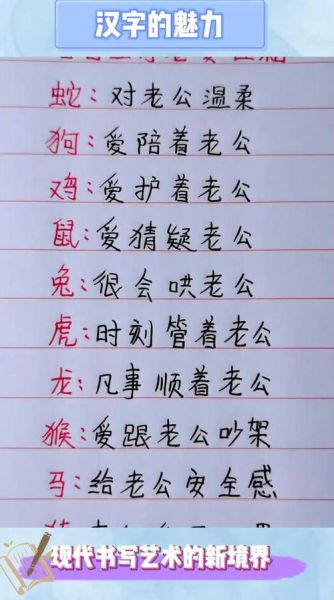 汉字的魅力
蛇：对老公温柔
狗：爱陪着老公
鸡：爱护着老公
鼠：爱猜疑老公
兔：很会哄老公
虎：时刻管着老公
龙：凡事顺着老公
猴：爱跟老公吵架
马：给老公安全感
现代书写艺术的新境界